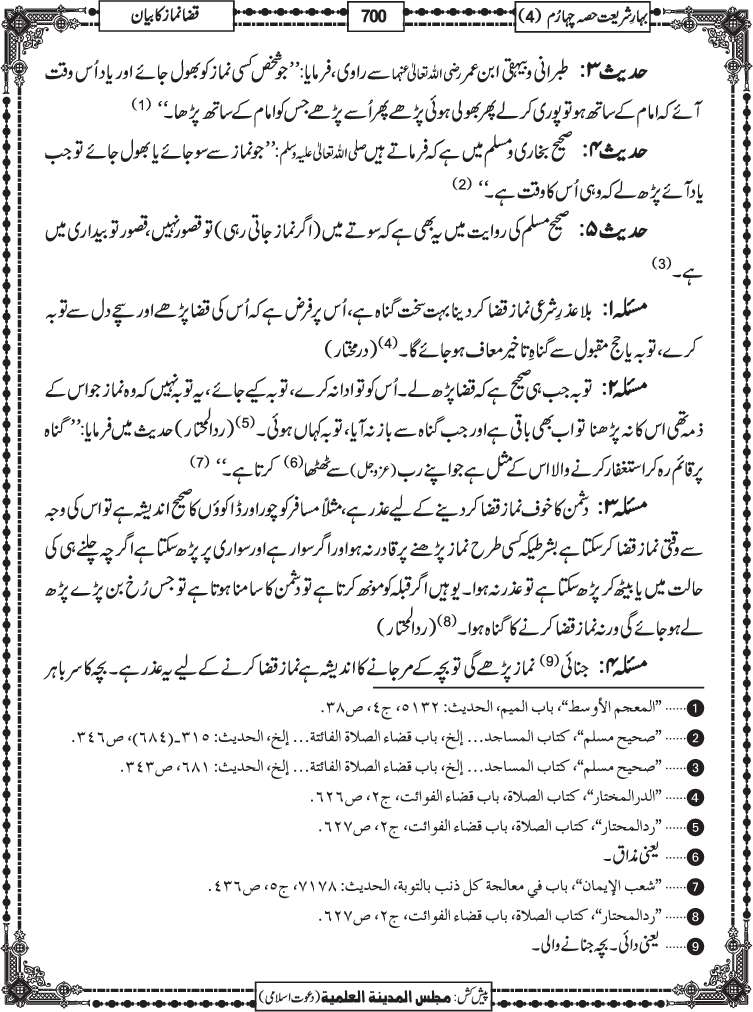 بہارِ شریعت حصہ چہارم (4)
700
قضا نماز کا بیان
حدیث ۳: طبرانی و بیہقی ابن عمر رضی اللہ تعالیٰ عنہما سے راوی، فرمایا: ’’جو شخص کسی نماز کو بھول جائے اور یاد اُس وقت
آئے کہ امام کے ساتھ ہو تو پوری کرلے پھر بھولی ہوئی پڑھے پھر اُسے پڑھے جس کو امام کے ساتھ پڑھا۔‘‘ (1)
حدیث ۴: صحیح بخاری و مسلم میں ہے کہ فرماتے ہیں صلی اللہ تعالیٰ علیہ وسلم: ’’جو نماز سے سو جائے یا بھول جائے تو جب
یاد آئے پڑھ لے کہ وہی اُس کا وقت ہے۔‘‘ (2)
حدیث ۵: صحیح مسلم کی روایت میں یہ بھی ہے کہ سوتے میں (اگر نماز جاتی رہی) تو قصور نہیں، قصور تو بیداری میں
ہے۔(3)
مسئلہ ۱: بلا عذرِ شرعی نماز قضا کر دینا بہت سخت گناہ ہے، اُس پر فرض ہے کہ اُس کی قضا پڑھے اور سچے دل سے توبہ
کرے، توبہ یا حج مقبول سے گناہِ تاخیر معاف ہو جائے گا۔(4) (درمختار)
مسئلہ ۲: توبہ جب ہی صحیح ہے کہ قضا پڑھ لے۔ اُس کو تو ادا نہ کرے، توبہ کیے جائے، یہ توبہ نہیں کہ وہ نماز جو اس کے
ذمہ تھی اس کا نہ پڑھنا تو اب بھی باقی ہے اور جب گناہ سے باز نہ آیا، توبہ کہاں ہوئی۔(5) (ردالمحتار) حدیث میں فرمایا: ’’گناہ
پر قائم رہ کر استغفار کرنے والا اس کے مثل ہے جو اپنے رب (عزوجل) سے ٹھٹھا(6) کرتا ہے۔‘‘ (7)
مسئلہ ۳: دشمن کا خوف نماز قضا کر دینے کے لیے عذر ہے، مثلاً مسافر کو چور اور ڈاکوؤں کا صحیح اندیشہ ہے تو اس کی وجہ
سے وقتی نماز قضا کر سکتا ہے بشرطیکہ کسی طرح نماز پڑھنے پر قادر نہ ہو اور اگر سوار ہے اور سواری پر پڑھ سکتا ہے اگرچہ چلنے ہی کی
حالت میں یا بیٹھ کر پڑھ سکتا ہے تو عذر نہ ہوا۔ یوہیں اگر قبلہ کو مونھ کرتا ہے تو دشمن کا سامنا ہوتا ہے تو جس رُخ بن پڑے پڑھ
لے ہو جائے گی ورنہ نماز قضا کرنے کا گناہ ہوا۔(8) (ردالمحتار)
مسئلہ ۴: جنائی(9) نماز پڑھے گی تو بچہ کے مر جانے کا اندیشہ ہے نماز قضا کرنے کے لیے یہ عذر ہے۔ بچہ کا سر باہر
1 ...... ”المعجم الأوسط“، باب الميم، الحديث: ٥١٣٢، ج٤، ص٣٨.
2 ...... ”صحيح مسلم“، كتاب المساجد... إلخ، باب قضاء الصلاة الفائتة... إلخ، الحديث: ٣١٥ـ(٦٨٤)، ص٣٤٦.
3 ...... ”صحيح مسلم“، كتاب المساجد... إلخ، باب قضاء الصلاة الفائتة... إلخ، الحديث: ٦٨١، ص٣٤٣.
4 ...... ”الدرالمختار“، كتاب الصلاة، باب قضاء الفوائت، ج٢، ص٦٢٦.
5 ...... ”ردالمحتار“، كتاب الصلاة، باب قضاء الفوائت، ج٢، ص٦٢٧.
6 ...... یعنی مذاق۔
7 ...... ”شعب الإيمان“، باب في معالجة كل ذنب بالتوبة، الحديث: ٧١٧٨، ج٥، ص٤٣٦.
8 ...... ”ردالمحتار“، كتاب الصلاة، باب قضاء الفوائت، ج٢، ص٦٢٧.
9 ...... یعنی دائی۔ بچہ جنانے والی۔
پیش کش: مجلس المدينة العلمية (دعوت اسلامی)